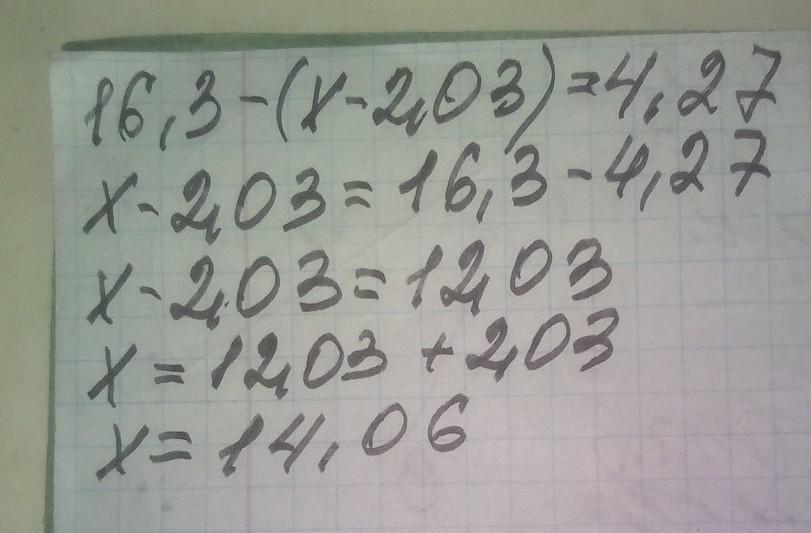 16,3-(x-2,03)=4,27
x-2,03=16,3-4,27
x-2,03=12,03
x=12,03+2,03
x=14,06